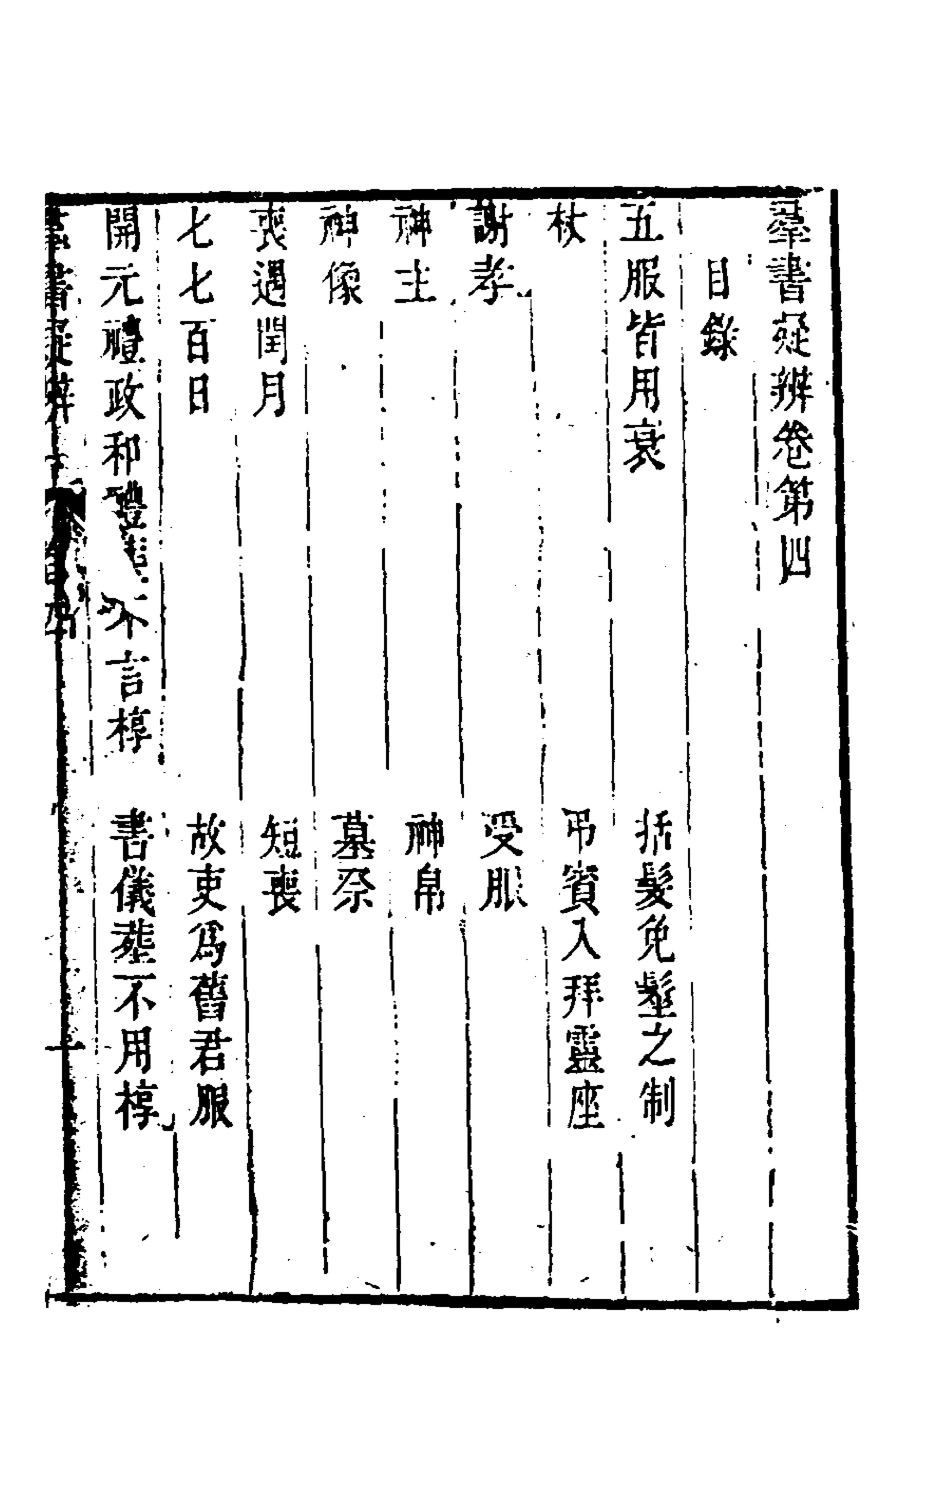 羣書疑辨卷第四
目錄
五服皆用衰　括髮免髽之制
杖　弔賓入拜靈座
謝孝　受服
神主　神帛
神像　墓祭
喪遇閏月　短喪
七七百日　故吏爲舊君服
開元禮政和禮不言椁　書儀塟不用椁
書疑辨